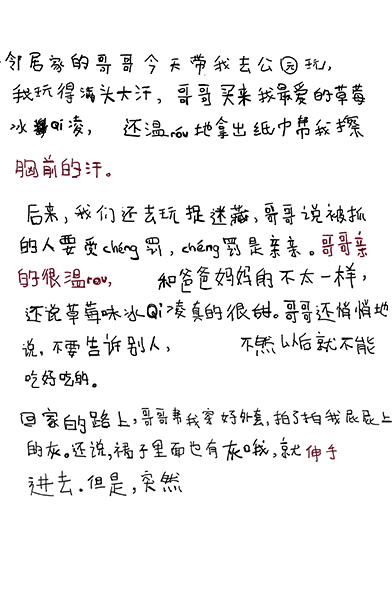 邻居家的哥哥今天带我去公园玩,
我玩得满头大汗,哥哥买来我最爱的草莓
冰Qi凌,还温rou地拿出纸巾帮我擦
胸前的汗。
后来,我们还去玩捉迷藏,哥哥说被抓
的人要受chéng罚,chéng罚是亲亲。哥哥亲
的很温rou,和爸爸妈妈的不太一样,
还说草莓味冰Qi凌真的很甜。哥哥还悄悄地
说,不要告诉别人,不然以后就不能
吃好吃的。
回家的路上,哥哥帮我穿好外套,拍了拍我屁屁上
的灰。还说,裙子里面也有灰哦,就伸手
进去.但是,突然